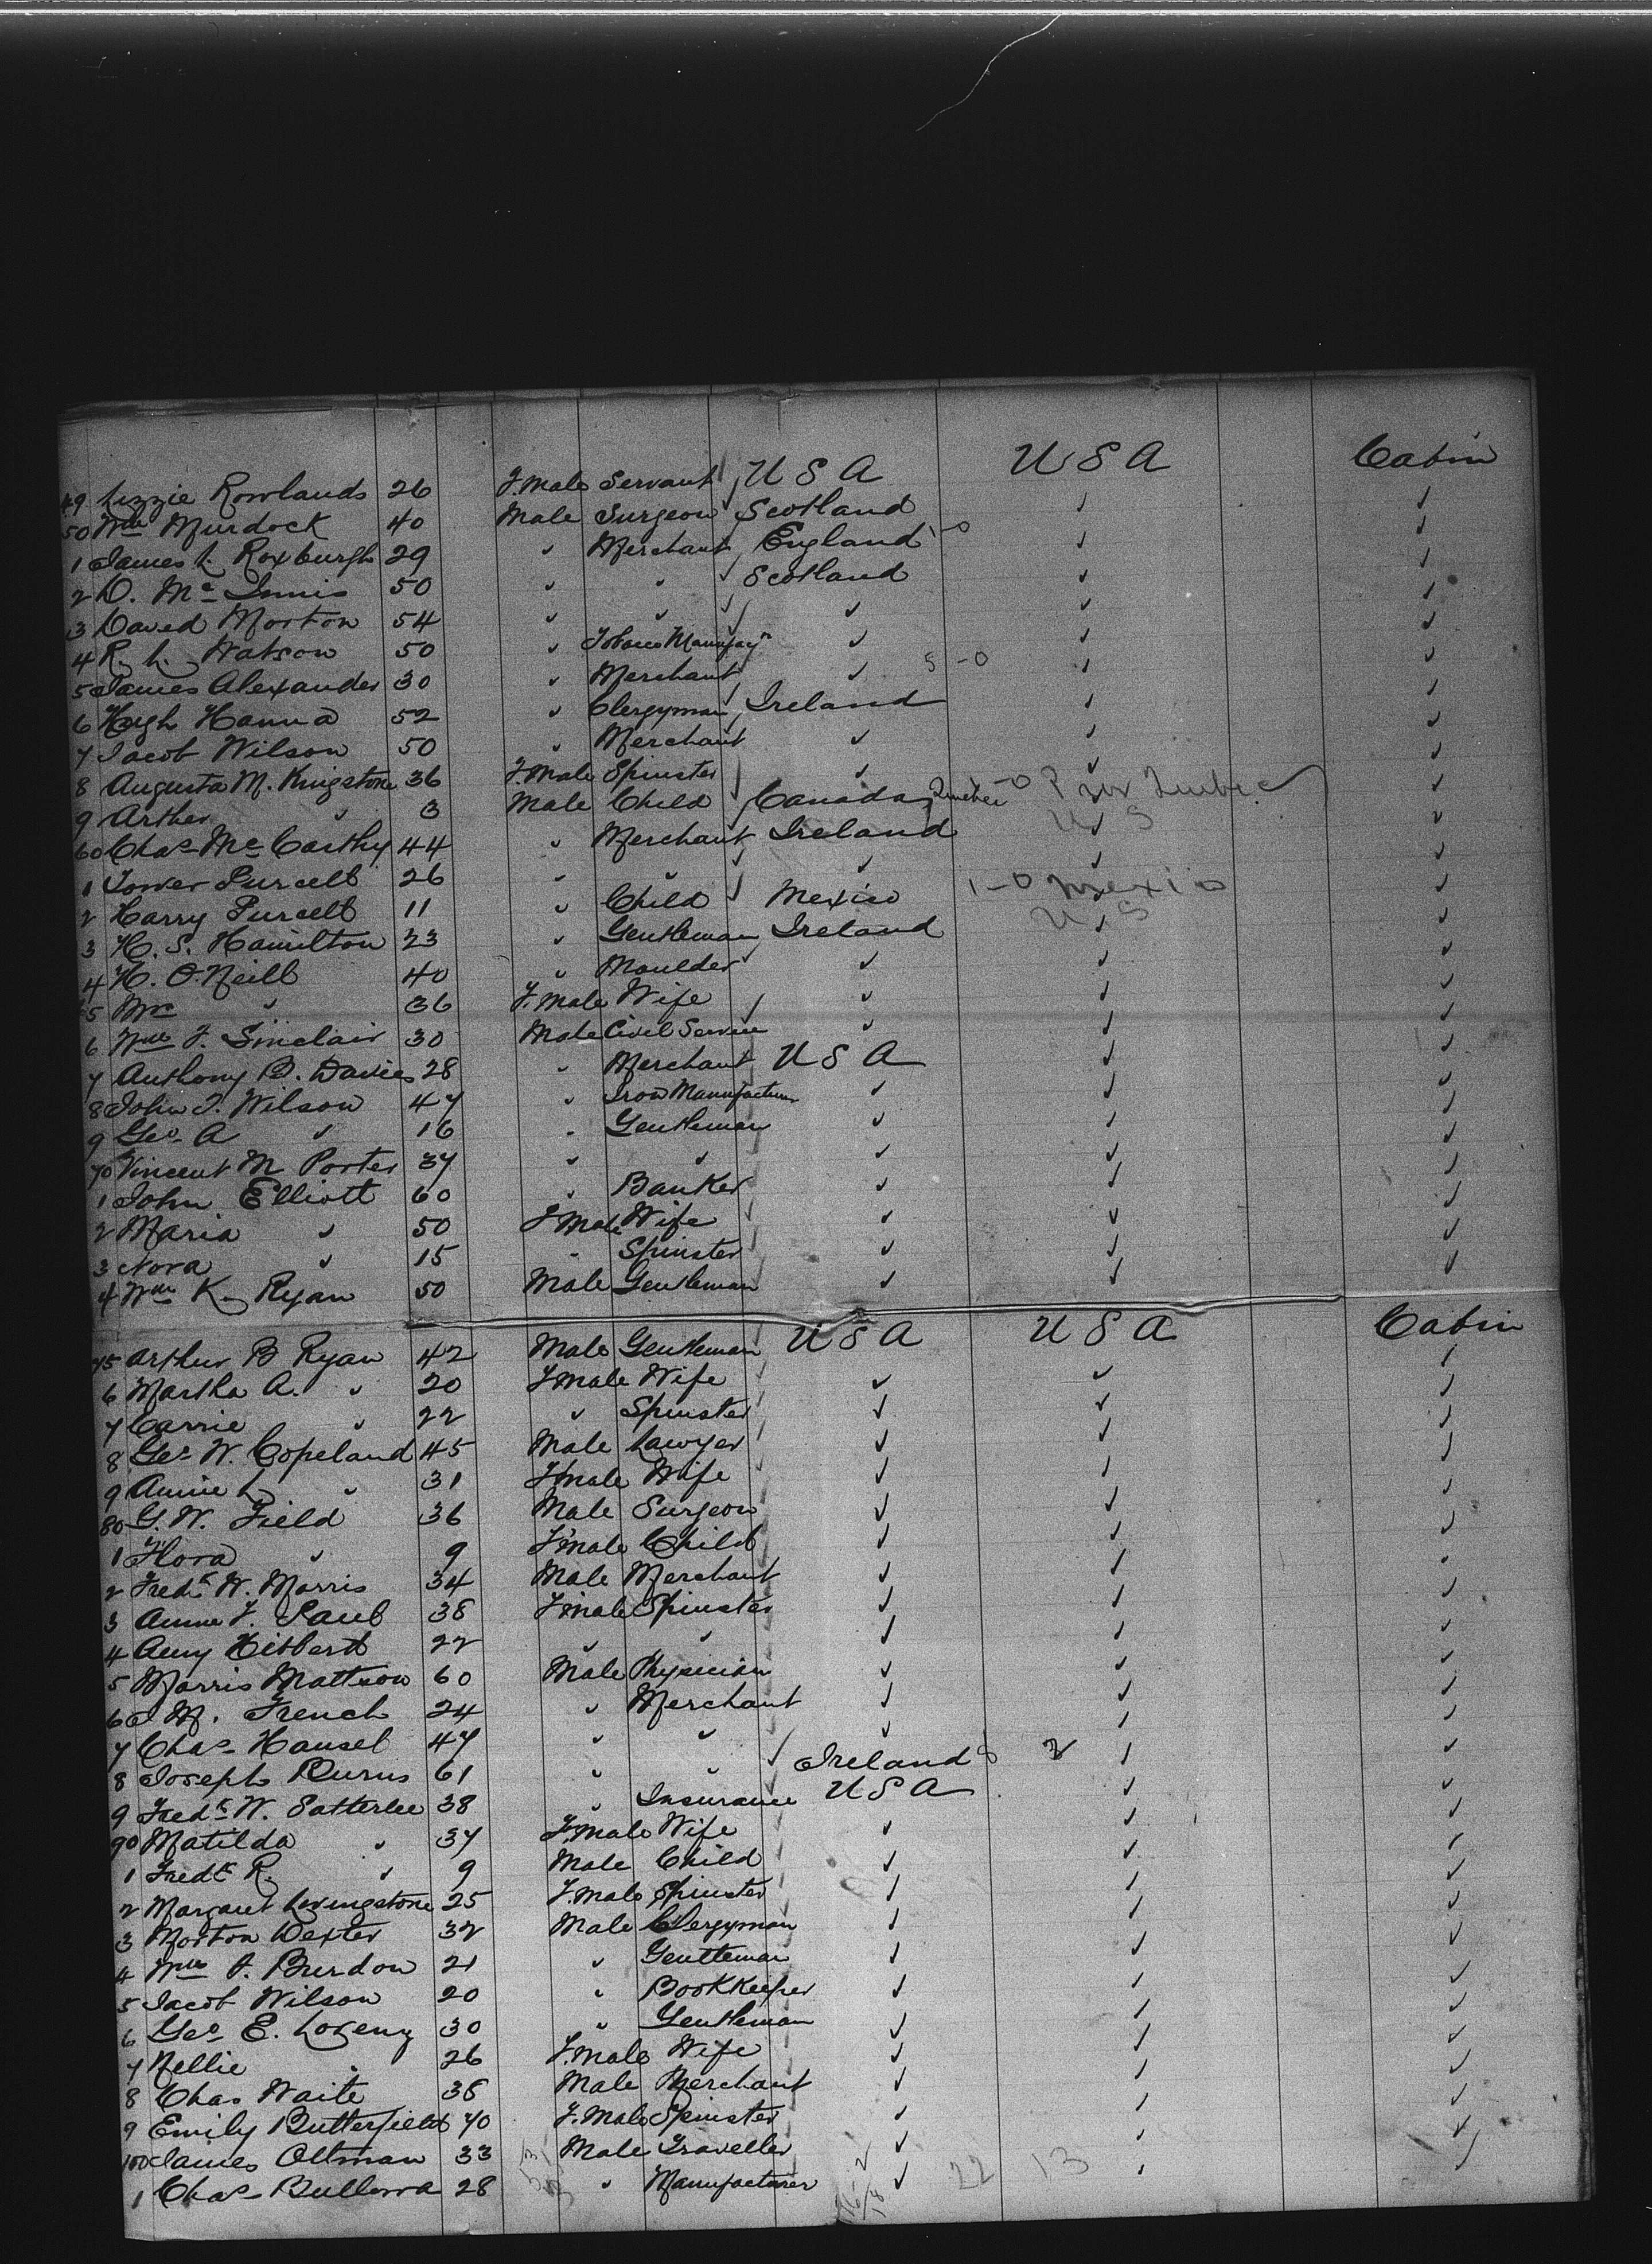 49 Lizzie Rowlands 26 F.Male Servant U S A U S A Cabin
50 Wm Murdock 40 Male Surgeon Scotland ✓ ✓
1 James L. Roxburgh 29 ✓ Merchant England 1-0 ✓ ✓
2 D. Mc Innis 50 ✓ ✓ Scotland ✓ ✓
3 David Morton 54 ✓ ✓ ✓ ✓ ✓
4 R. L. Watson 50 ✓ Tobacco Manufacr ✓ ✓ ✓
5 James Alexander 30 ✓ Merchant ✓ 5-0 ✓ ✓
6 Hugh Hanna 52 ✓ Clergyman Ireland ✓ ✓
7 Jacob Wilson 50 ✓ Merchant ✓ ✓ ✓
8 Augusta M. Kingstone 36 F.Male Spinster ✓ ✓ ✓
9 Arthur ✓ 3 Male Child Canada Quebec -0 Quebec ✓
60 Chas Mc Carthy 44 ✓ Merchant Ireland U S ✓ ✓
1 Tower Purcell 26 ✓ ✓ ✓ ✓ ✓
2 Harry Purcell 11 ✓ Child Mexico 1-0 Mexico ✓
3 H. S. Hamilton 23 ✓ Gentleman Ireland U S ✓ ✓
4 H. O'Neill 40 ✓ Moulder ✓ ✓ ✓
5 Mrs ✓ 36 F.Male Wife ✓ ✓ ✓
6 Wm F. Sinclair 30 Male Civil Service ✓ ✓ ✓
7 Anthony B. Davies 28 ✓ Merchant U S A ✓ ✓
8 John T. Wilson 47 ✓ Iron Manufacturer ✓ ✓ ✓
9 Geo A ✓ 16 ✓ Gentleman ✓ ✓ ✓
70 Vincent M Porter 37 ✓ ✓ ✓ ✓ ✓
1 John Elliott 60 ✓ Banker ✓ ✓ ✓
2 Maria ✓ 50 F Male Wife ✓ ✓ ✓
3 Nora ✓ 15 ✓ Spinster ✓ ✓ ✓
4 Wm K. Ryan 50 Male Gentleman ✓ ✓ ✓
75 Arthur B Ryan 42 Male Gentleman U S A U S A Cabin
6 Martha A. ✓ 20 F.male Wife ✓ ✓ ✓
7 Carrie ✓ 22 ✓ Spinster ✓ ✓ ✓
8 Geo W. Copeland 45 Male Lawyer ✓ ✓ ✓
9 Annie L ✓ 31 F.male Wife ✓ ✓ ✓
80 G. W. Field 36 Male Surgeon ✓ ✓ ✓
1 Flora ✓ 9 F.male Child ✓ ✓ ✓
2 Fredk W. Morris 34 Male Merchant ✓ ✓ ✓
3 Anna F. Paul 38 F.male Spinster ✓ ✓ ✓
4 Amy Hibbert 22 ✓ ✓ ✓ ✓ ✓
5 Morris Mattson 60 Male Physician ✓ ✓ ✓
6 J M. French 24 ✓ Merchant ✓ ✓ ✓
7 Chas Hansel 47 ✓ ✓ ✓ ✓ ✓
8 Joseph Burns 61 ✓ ✓ Ireland ✓ ✓
9 Fredk W. Satterlee 38 ✓ Insurance U S A ✓ ✓
90 Matilda ✓ 37 F.male Wife ✓ ✓ ✓
1 Fredk R. ✓ 9 Male Child ✓ ✓ ✓
2 Margaret Livingstone 25 F.male Spinster ✓ ✓ ✓
3 Morton Dexter 32 Male Clergyman ✓ ✓ ✓
4 Wm F. Burdon 21 ✓ Gentleman ✓ ✓ ✓
5 Jacob Wilson 20 ✓ Bookkeeper ✓ ✓ ✓
6 Geo E. Lozeny 30 ✓ Gentleman ✓ ✓ ✓
7 Nellie ✓ 26 F.male Wife ✓ ✓ ✓
8 Chas Waite 38 Male Merchant ✓ ✓ ✓
9 Emily Butterfield 40 F.Male Spinster ✓ ✓ ✓
100 James Oltman 33 Male Traveller ✓ ✓ ✓
1 Chas Bullowa 28 ✓ Manufacturer ✓ 22 13 ✓